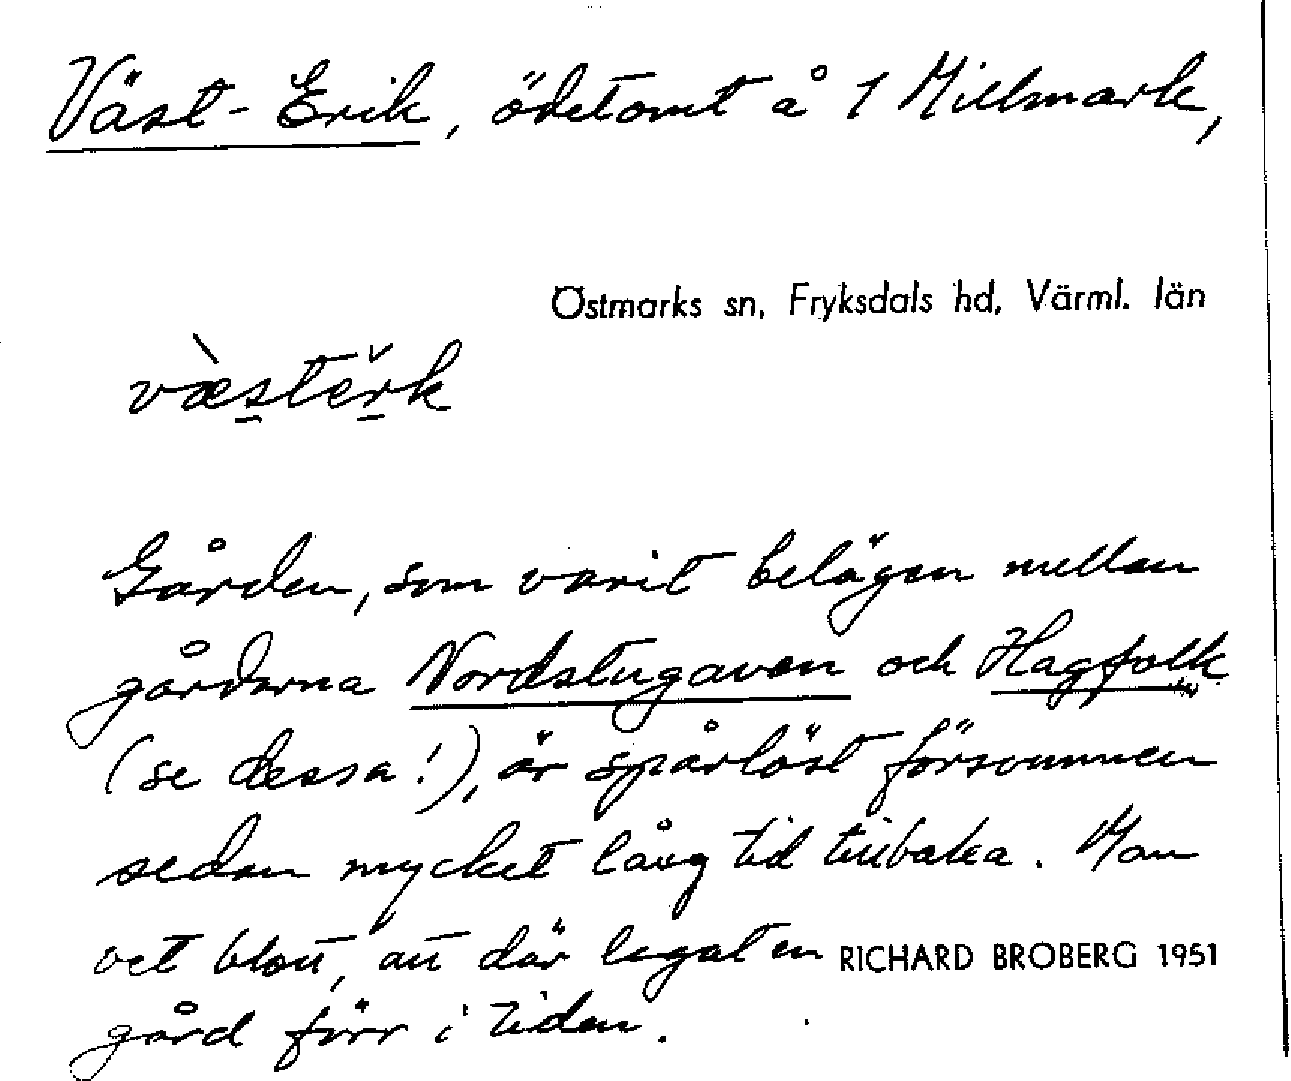 Väst-Erik, ödetomt å 1 Millmark,
Östmarks sn, Fryksdals hd, Värml. län
væ̀stĕrk
Gården, som varit belägen mellan
gårdarna Nordstugaven och Hagfolk
(se dessa!), är spårlöst försvunnen
sedan mycket lång tid tillbaka. Man
vet blott, att där legat en RICHARD BROBERG 1951
gård förr i tiden.